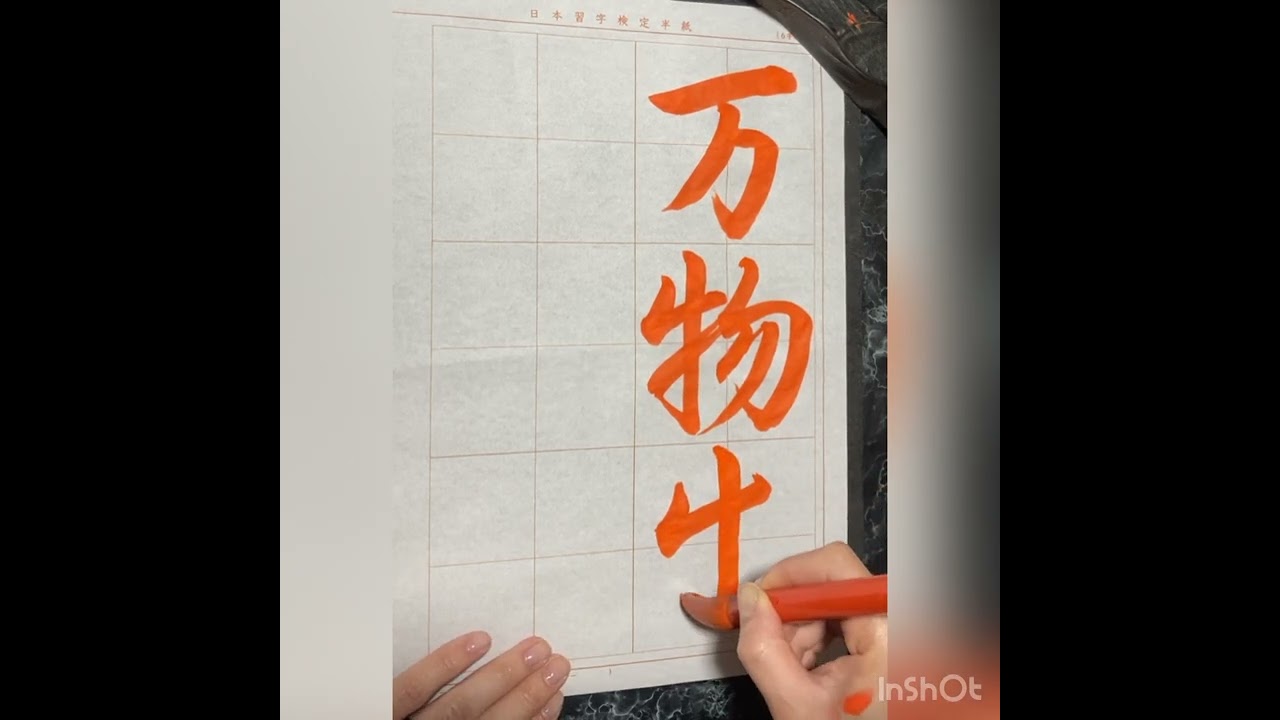 日本習字検定半紙
万物
InShOt